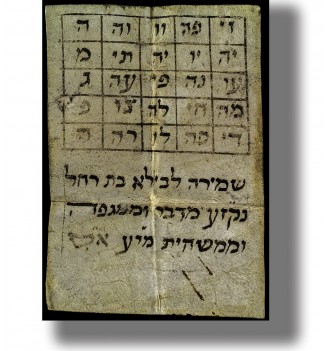 וי פה וו וה ה
יה יו יה תי מ
עו נה פי עה ג
מה חי לה צו פ
די סה לו רה ה
שמירה לבילא בת רחל
מדבר וממגפה
וממשחית